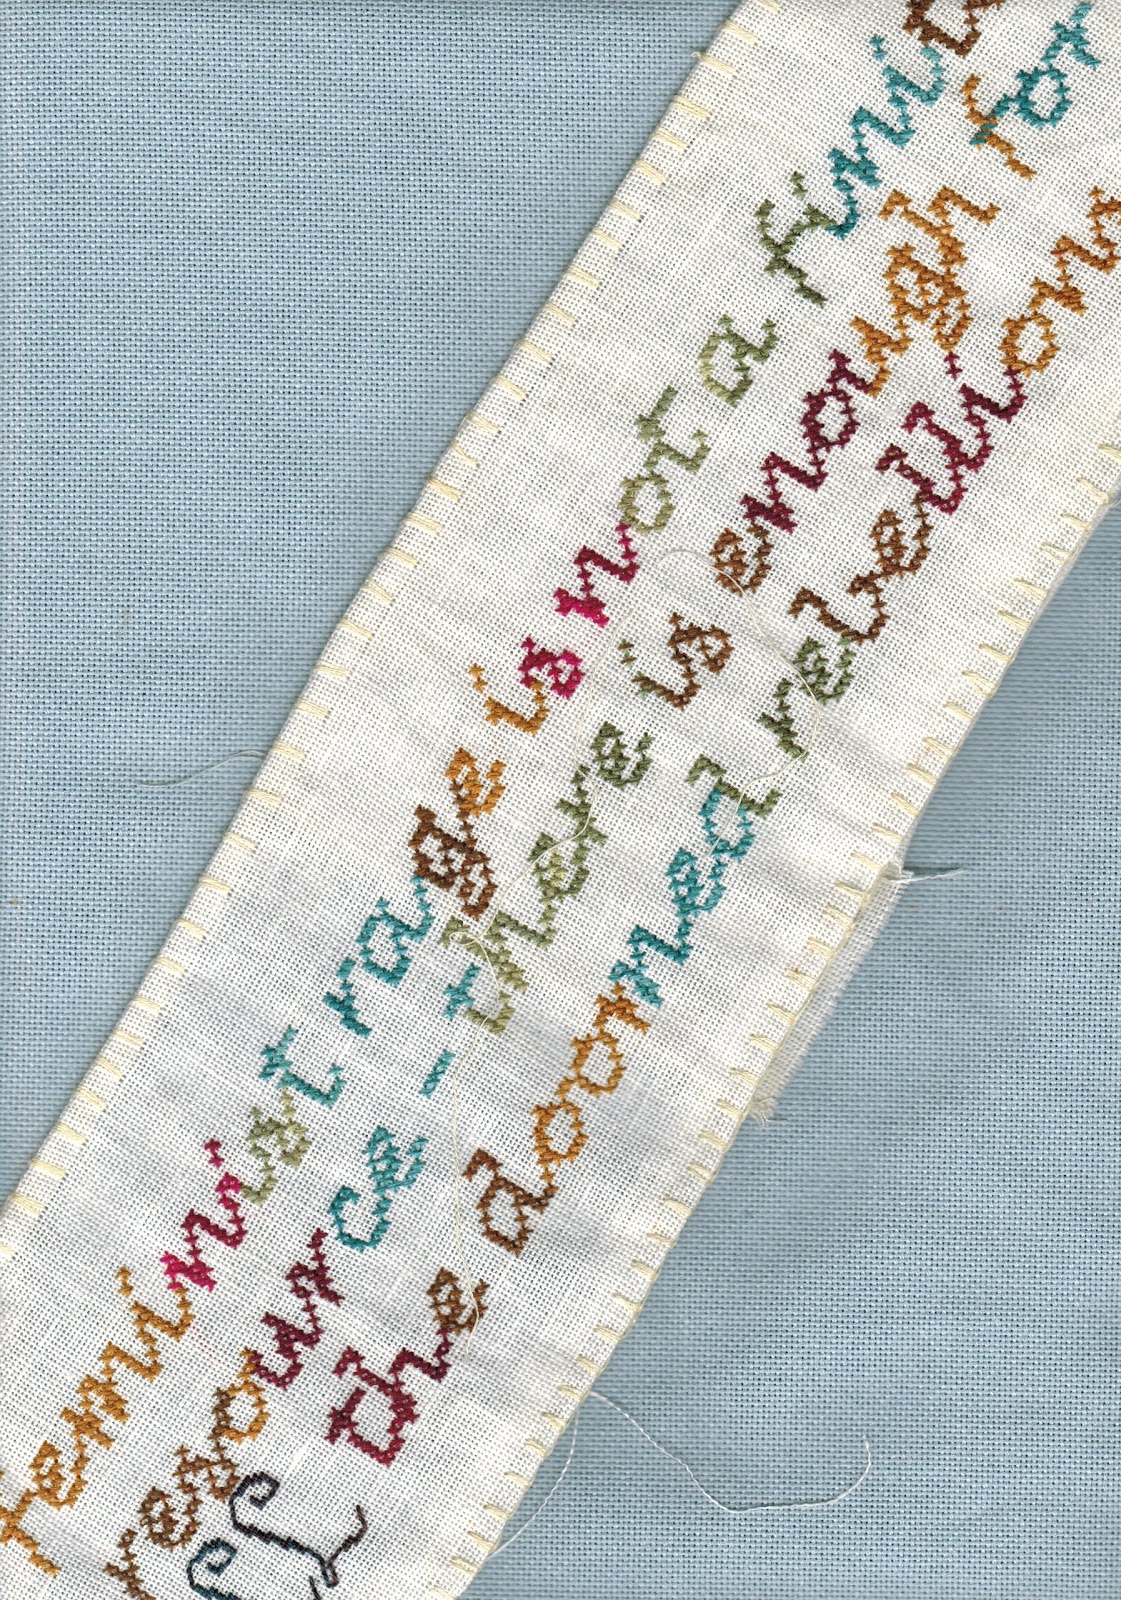 feminist rage is not a fini
resource – there is enough for
the doomed rebellions